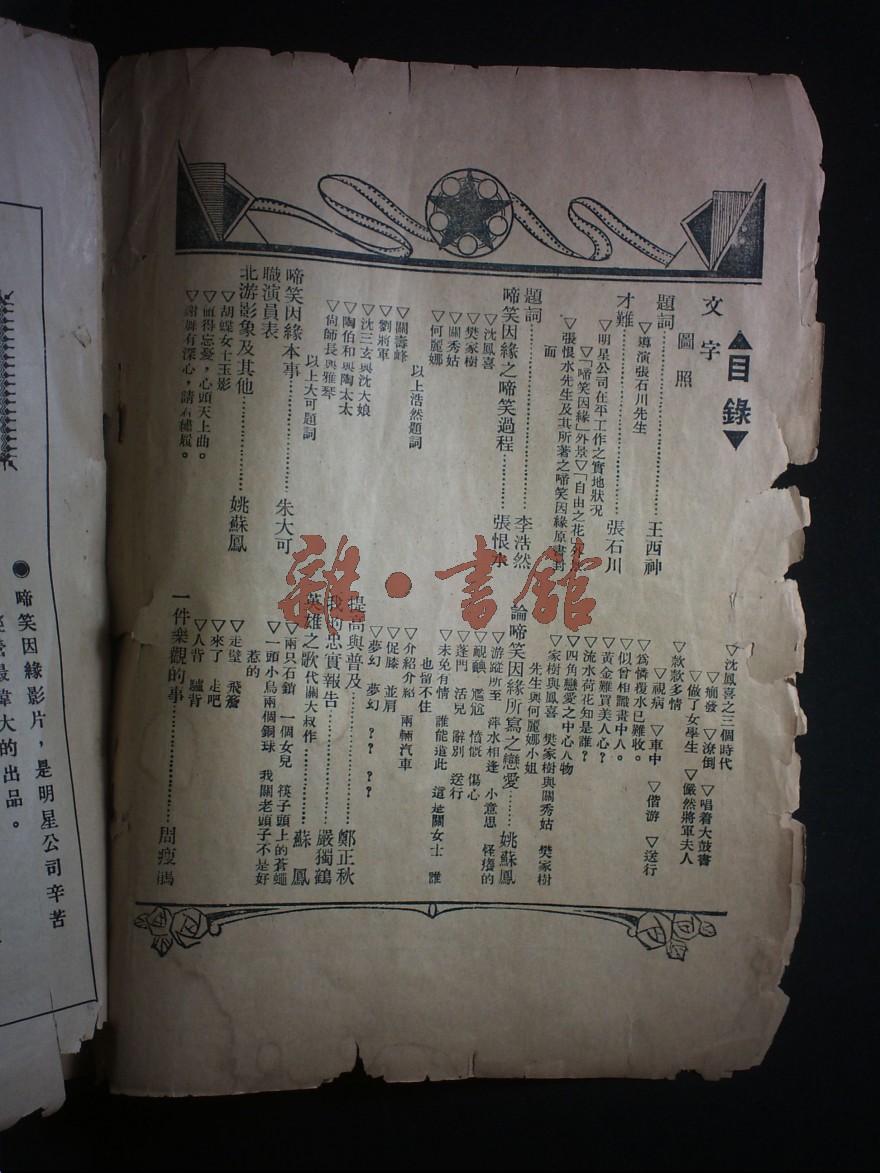 目錄
文字
圖照
題詞………王西神
▽導演張石川先生
才難………張石川
▽明星公司在平工作之實地狀況
▽「啼笑因緣」外景▽「自由之花」外景
▽張恨水先生及其所著之啼笑因緣原書封
面
題詞………李浩然
啼笑因緣之啼笑過程………張恨水
▽沈鳳喜
▽樊家樹
▽關秀姑
▽何麗娜
以上浩然題詞
▽關壽峰
▽劉將軍
▽沈三玄與沈大娘
▽陶伯和與陶太太
▽尙師長與雅琴
以上大可題詞
啼笑因緣本事………朱大可
職演員表
北游影象及其他………姚蘇鳳
▽胡蝶女士玉影
▽値得忘憂,心頭天上曲。
▽謝卿有深心,請看繡履。
▽沈鳳喜之三個時代
▽瘋發 ▽潦倒 ▽唱着大鼓書
▽做了女學生 ▽儼然將軍夫人
▽款款多情
▽視病 ▽車中 ▽偕游 ▽送行
▽爲憐覆水已難收。
▽似曾相識畫中人。
▽黃金難買美人心?
▽流水荷花知是誰?
▽四角戀愛之中心人物
▽家樹與鳳喜 樊家樹與關秀姑 樊家樹
先生與何麗娜小姐
論啼笑因緣所寫之戀愛………姚蘇鳳
▽游蹤所至 萍水相逢 小意思 怪癢的
▽覥靦 尷尬 憤慨 傷心
▽蓬門 活兒 辭別 送行
▽未免有情 誰能遣此 這是關女士 誰
也留不住
▽介紹介紹 兩輛汽車
▽促膝 並肩
▽夢幻 夢幻 ? ? ? ?
提高與普及………鄭正秋
我的忠實報告………嚴獨鶴
英雄之歌代關大叔作………蘇鳳
▽兩只石鎖 一個女兒 筷子頭上的蒼蠅
▽一頭小鳥兩個銅球 我關老頭子不是好
惹的
▽走壁 飛簷
▽來了 走吧
▽人背 驢背
一件樂觀的事………周瘦鵑
雜·書館
●啼笑因緣影片,是明星公司辛苦
經營最偉大的出品。